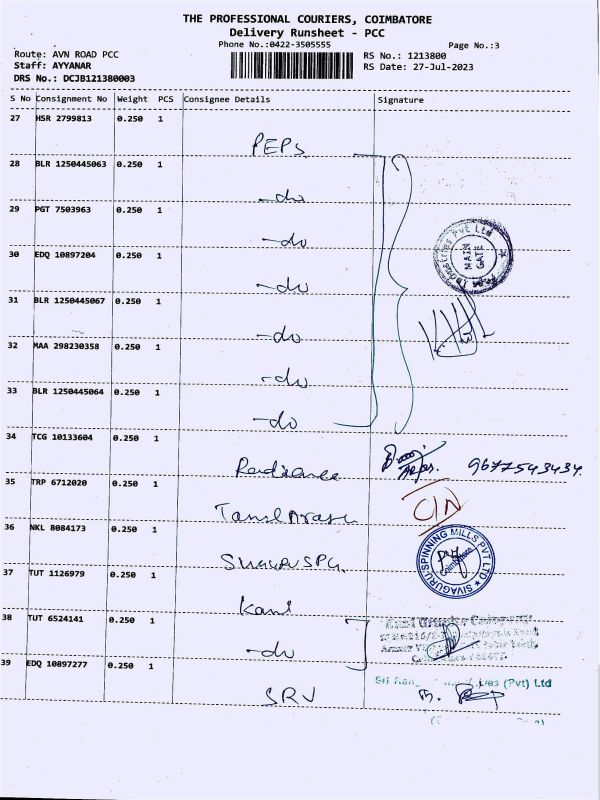 THE PROFESSIONAL COURIERS, COIMBATORE
Delivery Runsheet - PCC
Phone No.:0422-3505555
Page No.:3
Route: AVN ROAD PCC
Staff: AYYANAR
DRS No.: DCJB121380003
RS No.: 1213800
RS Date: 27-Jul-2023
S No Consignment No Weight PCS Consignee Details Signature
27 HSR 2799813 0.250 1
PEPS
28 BLR 1250445063 0.250 1
-do
29 PGT 7503963 0.250 1
-do
30 EDQ 10897204 0.250 1
-do
31 BLR 1250445067 0.250 1
-do
32 MAA 298230358 0.250 1
-do
33 BLR 1250445064 0.250 1
-do
Industries Pvt Ltd
MAIN
GATE
34 TCG 10133604 0.250 1
Radiance
9677543434.
35 TRP 6712020 0.250 1
Tamil Arasu
C/N
36 NKL 8084173 0.250 1
SIVAGURU SPINNING MILLS PVT LTD
Coimbatore
37 TUT 1126979 0.250 1
Kani
38 TUT 6524141 0.250 1
-do
39 EDQ 10897277 0.250 1
SRV
Sri (Pvt) Ltd